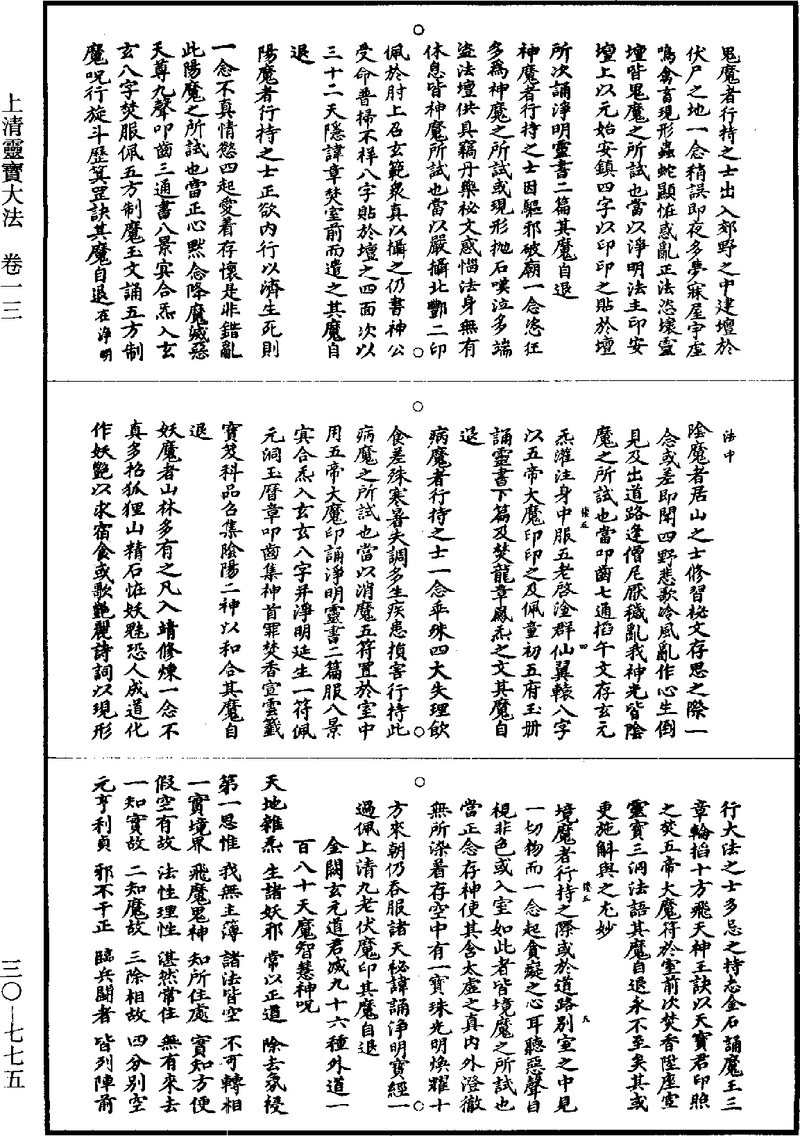 上清靈寶大法　卷一三
三〇—七七五
鬼魔者行持之士出入郊野之中建壇於
伏尸之地一念稍誤即夜多夢寐屋宇虛
鳴禽畜現形蟲蛇顯怪惑亂正法恣壞靈
壇皆鬼魔之所試也當以淨明法主印安
壇上以元始安鎮四字以印印之貼於壇
所次誦淨明靈書二篇其魔自退
神魔者行持之士因驅邪破廟一念恣狂
多為神魔之所試或現形拋石嘆泣多端
盜法壇供具竊丹藥秘文惑惱法身無有
休息皆神魔所試也當以嚴攝北酆二印
佩於肘上召玄範衆真以攝之仍書神公
受命普掃不祥八字貼於壇之四面次以
三十二天隱諱章焚室前而遣之其魔自
退
陽魔者行持之士正欲內行以濟生死則
一念不真情慾四起愛着存懷是非錯亂
此陽魔之所試也當正心黙念降魔滅惡
天尊九聲叩齒三通書八景冥合炁入玄
玄八字焚服佩五方制魔玉文誦五方制
魔呪行旋斗歷箕罡訣其魔自退在淨明
法中
陰魔者居山之士修習秘文存思之際一
念或差即聞四野悲歌冷風亂作心生倒
見及出道路逢僧尼厭穢亂我神光皆陰
魔之所試也當叩齒七通掐午文存玄元
炁灌注身中服五老啓塗群仙翼轅八字
以五帝大魔印印之及佩童初五府玉册
誦靈書下篇及焚龍章鳳炁之文其魔自
退
病魔者行持之士一念乖殊四大失理飲
食差殊寒暑失調多生疾患損害行持此
病魔之所試也當以消魔五符置於室中
用五帝大魔印誦淨明靈書二篇服八景
冥合炁入玄玄八字并淨明延生一符佩
元洞玉曆章叩齒集神首罪焚香宣雲籤
寶笈科品召集陰陽二神以和合其魔自
退
妖魔者山林多有之凡入靖修煉一念不
真多招狐狸山精石怪妖魅恐人成道化
作妖艷以求宿食或歌艷麗詩詞以現形
行大法之士多忌之持志金石誦魔王三
章輪掐十方飛天神王訣以天寶君印照
之焚五帝大魔符於室前次焚香陞座宣
靈寶三洞法語其魔自退永不至矣其或
更施斛與之尤妙
境魔者行持之際或於道路別室之中見
一切物而一念起貪癡之心耳聽惡聲目
視非色或入室如此者皆境魔之所試也
當正念存神使其含太虛之真內外澄徹
無所染着存空中有一寶珠光明煥耀十
方來朝仍吞服諸天秘諱誦淨明寶經一
過佩上清九老伏魔印其魔自退
金闕玄元道君滅九十六種外道一
百八十天魔智慧神呪
天地雜炁　生諸妖邪　常以正道　除去氛祲
第一思惟　我無主簿　諸法皆空　不可轉相
一實境界　飛魔鬼神　知所住處　實知方便
假空有故　法性理性　湛然常住　無有來去
一知實故　二知魔故　三除相故　四分別空
元亨利貞　邪不干正　臨兵鬪者　皆列陣前